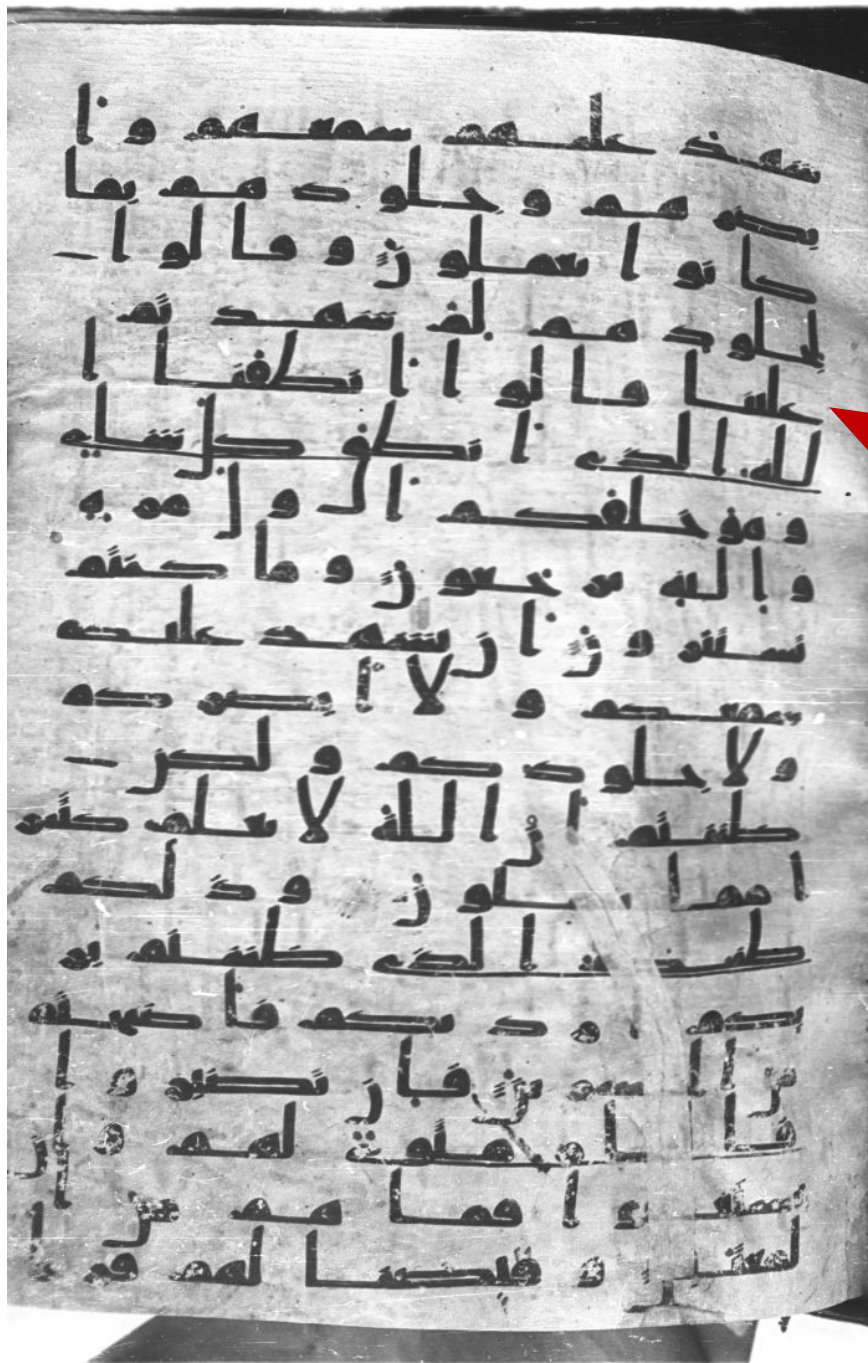 شهد عليهم سمعهم وا
بصرهم وجلودهم بما
كانوا يعملون وقالوا
لجلودهم لم شهدتم
علينا قالوا انطقنا ا
لله الذي انطق كل شاي
وهو خلقكم اول مرة
واليه ترجعون وما كنتم
تستترون ان يشهد عليكم
سمعكم ولا ابصركم
ولا جلودكم ولكن
ظننتم ان الله لا يعلم كثير
ا مما تعملون وذلكم
ظنكم الذي ظننتم بر
بكم ارديكم فاصبحتم
من الخسرين فان يصبروا
فالنار مثوى لهم وان
يستعتبوا فما هم من ا
لمعتبين وقيضنا لهم قر